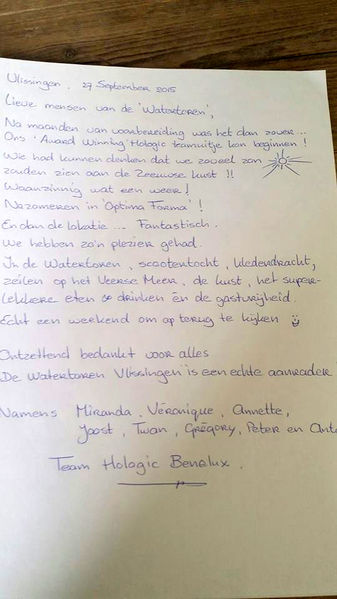 Vlissingen, 27 September 2015
Lieve mensen van de 'Watertoren',
Na maanden van voorbereiding was het dan zover...
Ons 'Award Winning' Hologic teamuitje kon beginnen!
Wie had kunnen denken dat we zoveel zon
zouden zien aan de Zeeuwse kust !!
Waanzinnig wat een weer!
Nazomeren in 'Optima Forma'!
En dan de lokatie ... Fantastisch.
We hebben zo'n plezier gehad.
In de Watertoren, scootertocht, klederdracht,
zeilen op het Veerse Meer, de kust, het super-
lekkere eten & drinken en de gastvrijheid.
Echt een weekend om op terug te kijken
Ontzettend bedankt voor alles
De Watertoren Vlissingen is een echte aanrader
Namens Miranda, Véronique, Annette,
Joost, Twan, Grégory, Peter en
Team Hologic Benelux.